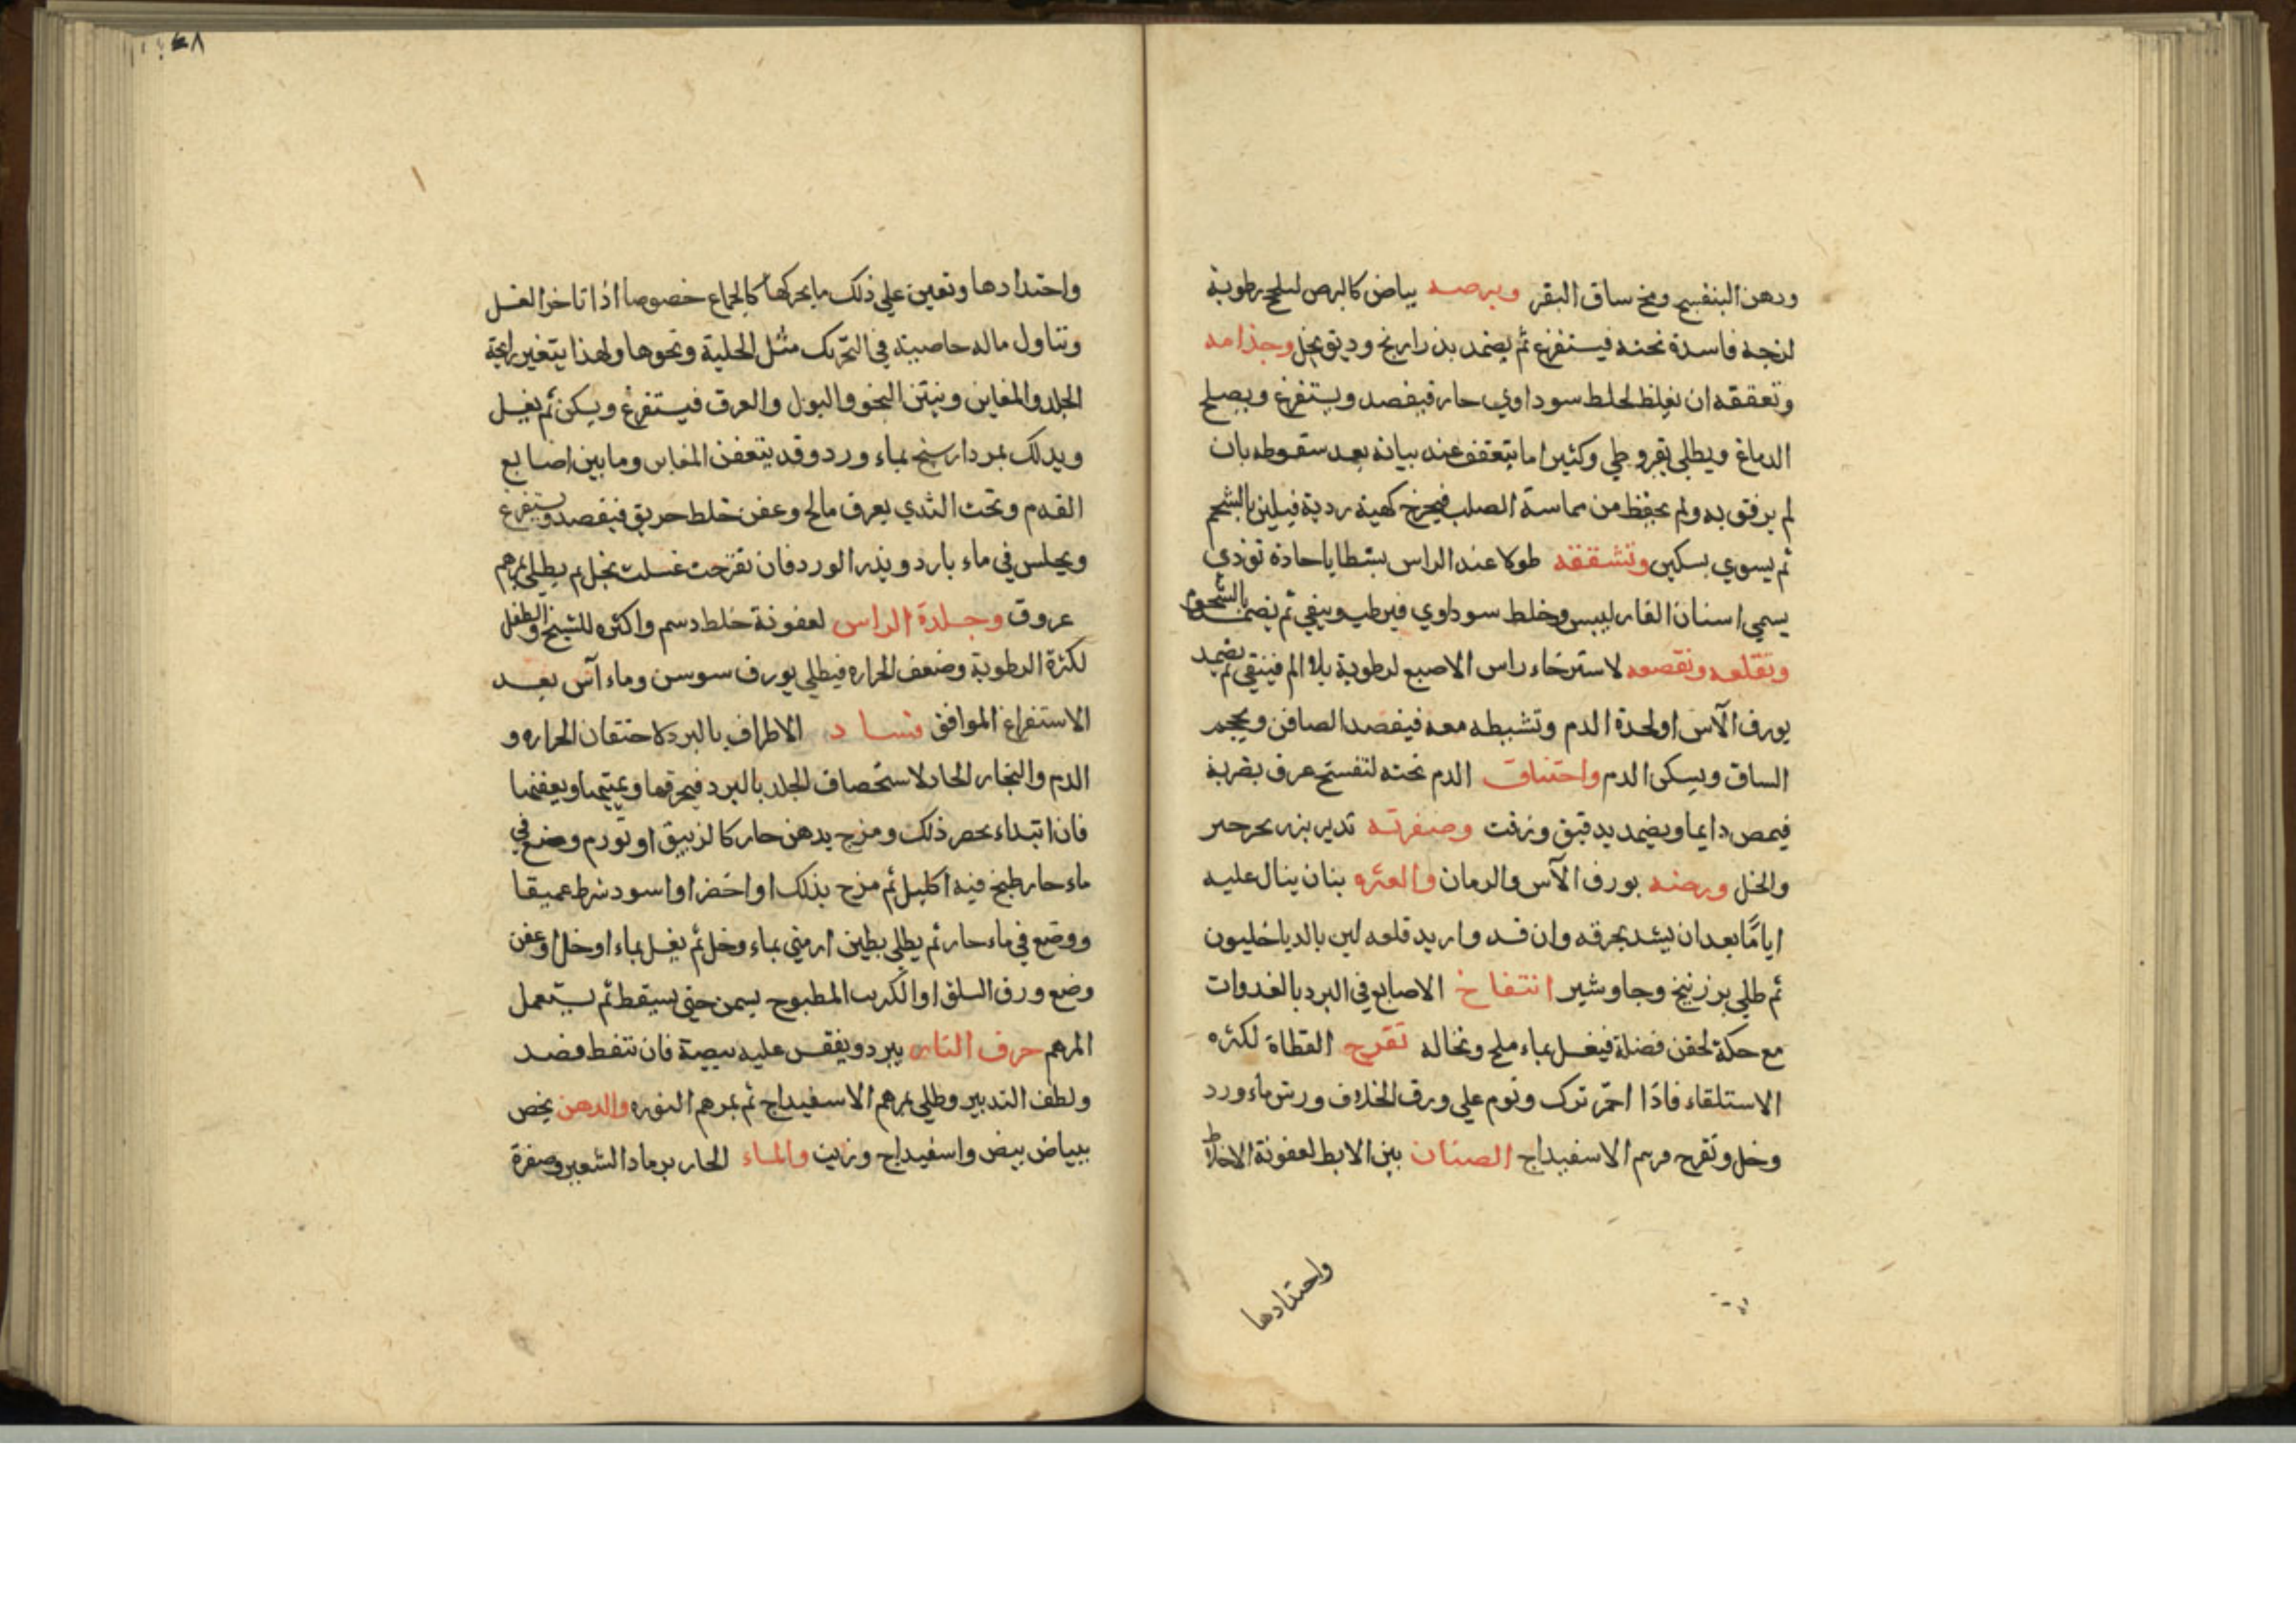 ودهن البنفسج ومخ ساق البقر وبرصه بياض كالبرص لبلغم رطوبة
لزجه فاسدة تحته فيستفرغ ثم يضمد بذراريح ودبق بخل وجذامه
وتعققه ان يغلظ لخلط سوداوي حار فيفصد ويستفرغ ويصلح
الدماغ ويطلى بقروطي وكثيرا ما يتعقف عند بيانه بعد سقوطه بان
لم يرفق به ولم يحفظ من مماسة الصلب فيخرج كهيئة ردية فيلين بالشحم
ثم يسوي بسكين وتشققه طولا عند الراس بشظايا حادة توذي
يسمى اسنان الفار ليبس وخلط سوداوي فيرطب وينقي ثم يضمد بالشحوم
وتقلعه وتقصعه لاسترخاء راس الاصبع لرطوبة بلا الم فينقى ثم يضمد
بورق الآس او لحدة الدم وتشبطه معه فيفصد الصافن ويحجم
الساق ويسكن الدم واختناق الدم تحته لتفسخ عرق بضربة
فيمص دايما ويضمد بدقيق وزفت وصفرته تدبر بزر جرجير
والخل ورضه بورق الآس والرمان والعثره بنان ينال عليه
اياما بعد ان يشد بخرقه وان فسد واريد قلعه لين بالدياخليون
ثم طلي بزرنيخ وجاوشير انتفاخ الاصابع في البرد بالغدوات
مع حكة لحقن فضلة فيغسل بماء ملح ونخاله تقرح القطاة لكثره
الاستلقاء فاذا احمر ترك ونوم علي ورق الخلاف ورش ماء ورد
وخل وتقرح مرهم الاسفيداج الصنان بين الابط لعفونة الاخلاط
واحتدادها
واحتدادها وتعين علي ذلك ما يحركها كالجماع خصوصا اذا تاخر الغسل
وتناول ماله خاصية في التحريك مثل الحلبة ونحوها ولهذا يتغير رايحة
الجلد والمغابن وينتن النجو والبول والعرق فيستفرغ ويسكن ثم يغسل
ويدلك بمرداسنج بماء ورد وقد يتعفن المغابن وما بين اصابع
القدم وتحت الثدي بعرق مالح وعفن خلط حريق فيفصد ويستفرغ
ويجلس في ماء بارد وبذر الورد فان تقرحت غسلت بخل ثم يطلى بمرهم
عروق وجلدة الراس لعفونة خلط دسم واكثره للشيخ والطفل
لكثرة الرطوبة وضعف الحراره فيطلي بورق سوسن وماء آس بعد
الاستفراغ الموافق فساد الاطراف بالبرد لاحتقان الحراره و
الدم والبخار الحاد لاستخصاف الجلد بالبرد فيحرقها ويميتها ويعفنها
فان ابتداء بحصر ذلك ومزج بدهن حار كالزيبق او تورم وضع في
ماء حار طبخ فيه اكليل ثم مزج بذلك او اخضر او اسود شرط عميقا
ووضع في ماء حار ثم يطلى بطين ارمني بماء وخل ثم يغسل بماء او خل او عفن
وضع ورق السلق او الكرنب المطبوح بسمن حتى يسقط ثم يستعمل
المرهم حرق النار يبرد ويفقس عليه بيضة فان تنفط فصد
ولطف التدبير وطلي بمرهم الاسفيداج ثم بمرهم النوره والدهن يخص
ببياض بيض واسفيداج وزيت والماء الحار برماد الشعير وصفرة